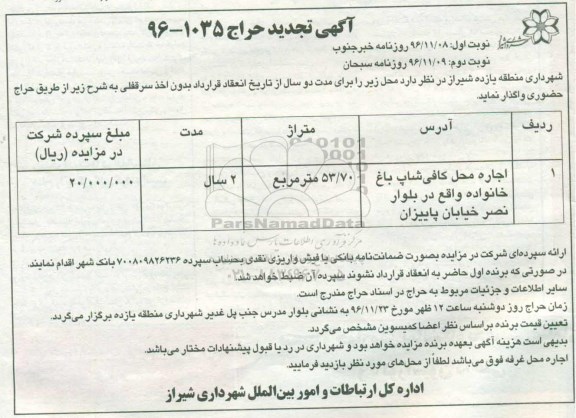 آگهی تجدید حراج ۱۰۳۵-۹۶
نوبت اول: ۹۶/۱۱/۰۸ روزنامه خبرجنوب
نوبت دوم: ۹۶/۱۱/۰۹ روزنامه سبحان
شهرداری منطقه یازده شیراز در نظر دارد محل زیر را برای مدت دو سال از تاریخ انعقاد قرارداد بدون اخذ سرقفلی به شرح زیر از طریق حراج
حضوری واگذار نماید.
ردیف آدرس متراژ مدت مبلغ سپرده شرکت
در مزایده (ریال)
۱ اجاره محل کافی‌شاپ باغ ۵۳/۷۰ مترمربع ۲ سال ۲۰/۰۰۰/۰۰۰
خانواده واقع در بلوار
نصر خیابان پاییزان
ParsNamadData
ارائه سپرده‌ای شرکت در مزایده بصورت ضمانت‌نامه بانکی یا فیش واریزی نقدی بحساب سپرده ۷۰۰۸۰۹۸۲۶۲۳۶ بانک شهر اقدام نمایند.
در صورتی که برنده اول حاضر به انعقاد قرارداد نشوند سپرده آن ضبط خواهد شد.
سایر اطلاعات و جزئیات مربوط به حراج در اسناد حراج مندرج است.
زمان حراج روز دوشنبه ساعت ۱۲ ظهر مورخ ۹۶/۱۱/۲۳ به نشانی بلوار مدرس جنب پل غدیر شهرداری منطقه یازده برگزار می‌گردد.
تعیین قیمت برنده براساس نظر اعضا کمیسوین مشخص می‌گردد.
بدیهی است هزینه آگهی بعهده برنده مزایده خواهد بود و شهرداری در رد یا قبول پیشنهادات مختار می‌باشد.
اجاره محل غرفه فوق می‌باشد لطفاً از محل‌های مورد نظر بازدید فرمایید.
اداره کل ارتباطات و امور بین‌الملل شهرداری شیراز